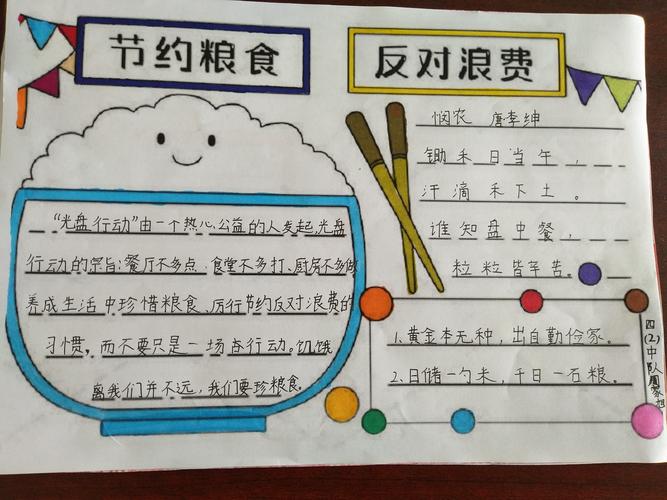 节约粮食
反对浪费
悯农 唐李绅
锄禾日当午,
汗滴禾下土。
谁知盘中餐,
粒粒皆辛苦。
“光盘行动”由一个热心公益的人发起,光盘
行动的宗旨:餐厅不多点、食堂不多打、厨房不多做
养成生活中珍惜粮食、厉行节约反对浪费的
习惯,而不要只是一场行动。饥饿
离我们并不远,我们要珍粮食。
1.黄金本无种,出自勤俭家。
2.日储一勺米,千日一石粮。
四(2)中队周家旭